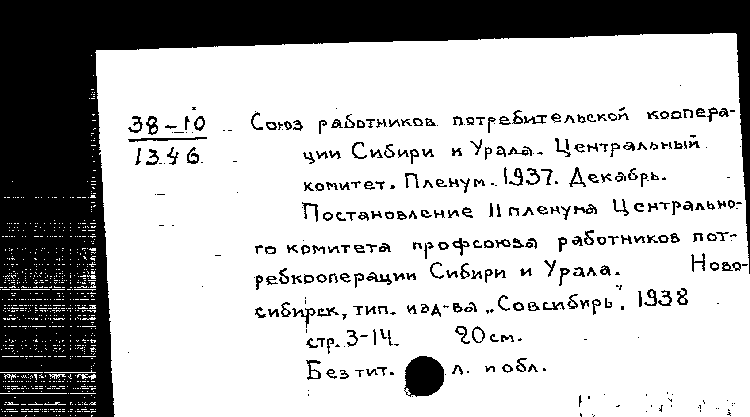 38-10
1346
Союз работников потребительской коопера-
ции Сибири и Урала. Центральный
комитет. Пленум. 1937. Декабрь.
Постановление II пленума Центрально-
го комитета профсоюза работников пот-
ребкооперации Сибири и Урала. Ново-
сибирск, тип. изд-ва „Совсибирь", 1938
стр. 3-14. 20 см.
Без тит. л. и обл.